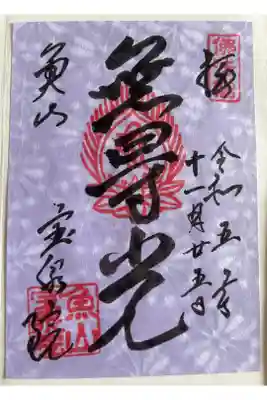 拝
令和五年
十一月廿五日
無㝵光
魚山
宝泉院